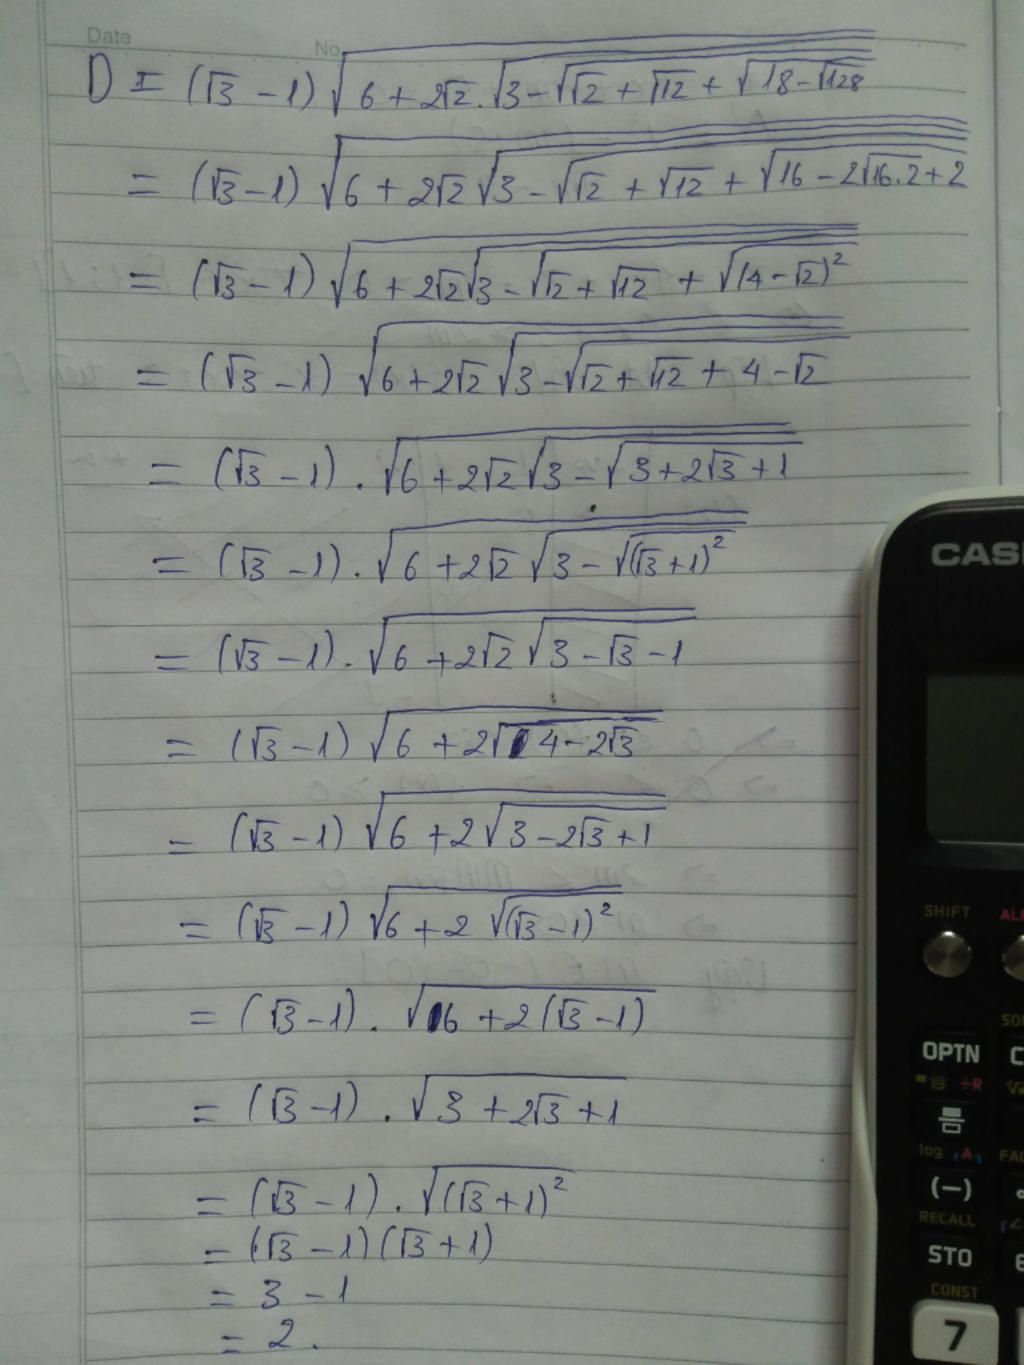 Date
No.
D = (√3 - 1)√(6 + 2√2.√(3 - √(√2 + √12 + √(18 - √128))))
= (√3 - 1)√(6 + 2√2√(3 - √(√2 + √12 + √(16 - 2√16.2 + 2))))
= (√3 - 1)√(6 + 2√2√(3 - √(√2 + √12 + √((4 - √2)²))))
= (√3 - 1)√(6 + 2√2√(3 - √(√2 + √12 + 4 - √2)))
= (√3 - 1).√(6 + 2√2√(3 - √(3 + 2√3 + 1)))
= (√3 - 1).√(6 + 2√2√(3 - √((√3 + 1)²)))
= (√3 - 1).√(6 + 2√2√(3 - √3 - 1))
= (√3 - 1)√(6 + 2√(4 - 2√3))
= (√3 - 1)√(6 + 2√(3 - 2√3 + 1))
= (√3 - 1)√(6 + 2√((√3 - 1)²))
= (√3 - 1).√(6 + 2(√3 - 1))
= (√3 - 1).√(3 + 2√3 + 1)
= (√3 - 1).√((√3 + 1)²)
= (√3 - 1)(√3 + 1)
= 3 - 1
= 2.
CAS
SHIFT
OPTN
÷R
log
A
(−)
RECALL
STO
CONST
7